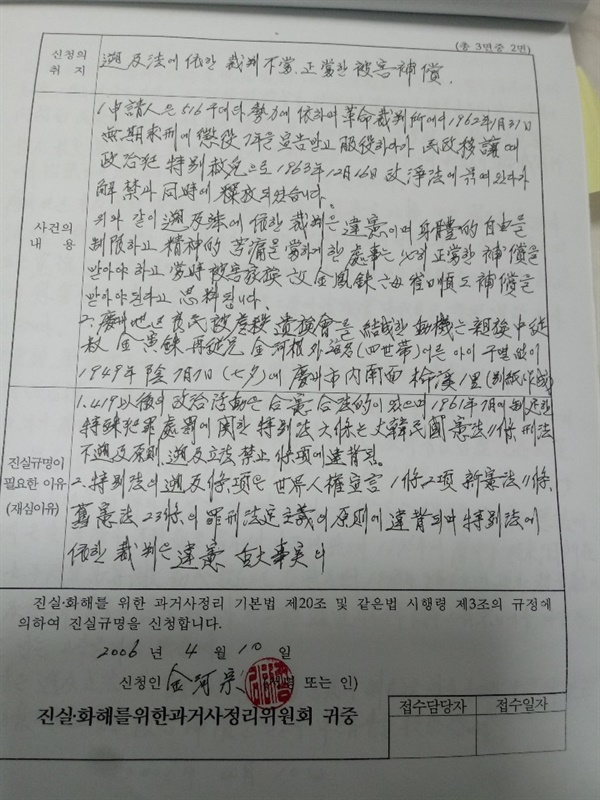 (총 3면중 2면)
신청의
취 지
遡及法에 依한 裁判不當, 正當한 被害補償.
사건의
내 용
1. 申請人은 516 쿠데타 勢力에 依하여 革命裁判所에서 1962年1月31日
無期求刑에 懲役 7年을 宣告받고 服役하다가 民政移讓때
政治犯 特別赦免으로 1963年12月16日 政淨法에 묶여 있다가
解禁과 同時에 釋放되었습니다.
위와 같이 遡及法에 依한 裁判은 違憲이며 身體的 自由를
制限하고 精神的 苦痛을 當하게한 處事는 必히 正當한 補償을
받아야 하고 當時 被害家族 父 金鳳銖 母 崔順도 補償을
받아야 된다고 思料됩니다.
2. 慶州地區 良民被虐殺 遺族會를 結成한 動機는 親族中 從
叔 金 銖 再從兄 金河根外 (四世帶) 어른 아이 구별 없이
1949年 陰 7月7日 (七夕)에 慶州市 內南面 檜溪1里 (別紙作成)
진실규명이
필요한 이유
(재심이유)
1. 419 以後의 政治活動은 合憲 合法的이었으며 1961年 7月에 制定한
特殊犯罪 處罰에 關한 特別法 6條는 大韓民國 憲法 11條, 刑法
不遡及原則, 遡及立法 禁止 條項에 違背됨.
2. 特別法의 遡及條項은 世界人權宣言 11條2項 新憲法 11條,
舊憲法 23條의 罪刑法定主義의 原則에 違背되며 特別法에
依한 裁判은 違憲
진실·화해를 위한 과거사정리 기본법 제20조 및 같은법 시행령 제3조의 규정에
의하여 진실규명을 신청합니다.
2006 년 4 월 10 일
신청인 金河宗 (서명 또는 인)
진실·화해를위한과거사정리위원회 귀중
접수담당자 접수일자